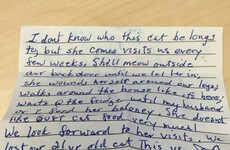 I dont know who this cat belongs
to, but she comes visits us every
few weeks. She'll meow outside
our back door until we let her in,
she winds herself around our legs,
walks around the house like its hers,
waits @ the fridge until my husband
or I feed her baloney. She doesnt
like OUR cat food very much!
We look forward to her visits. We
lost our 21 yr old cat This